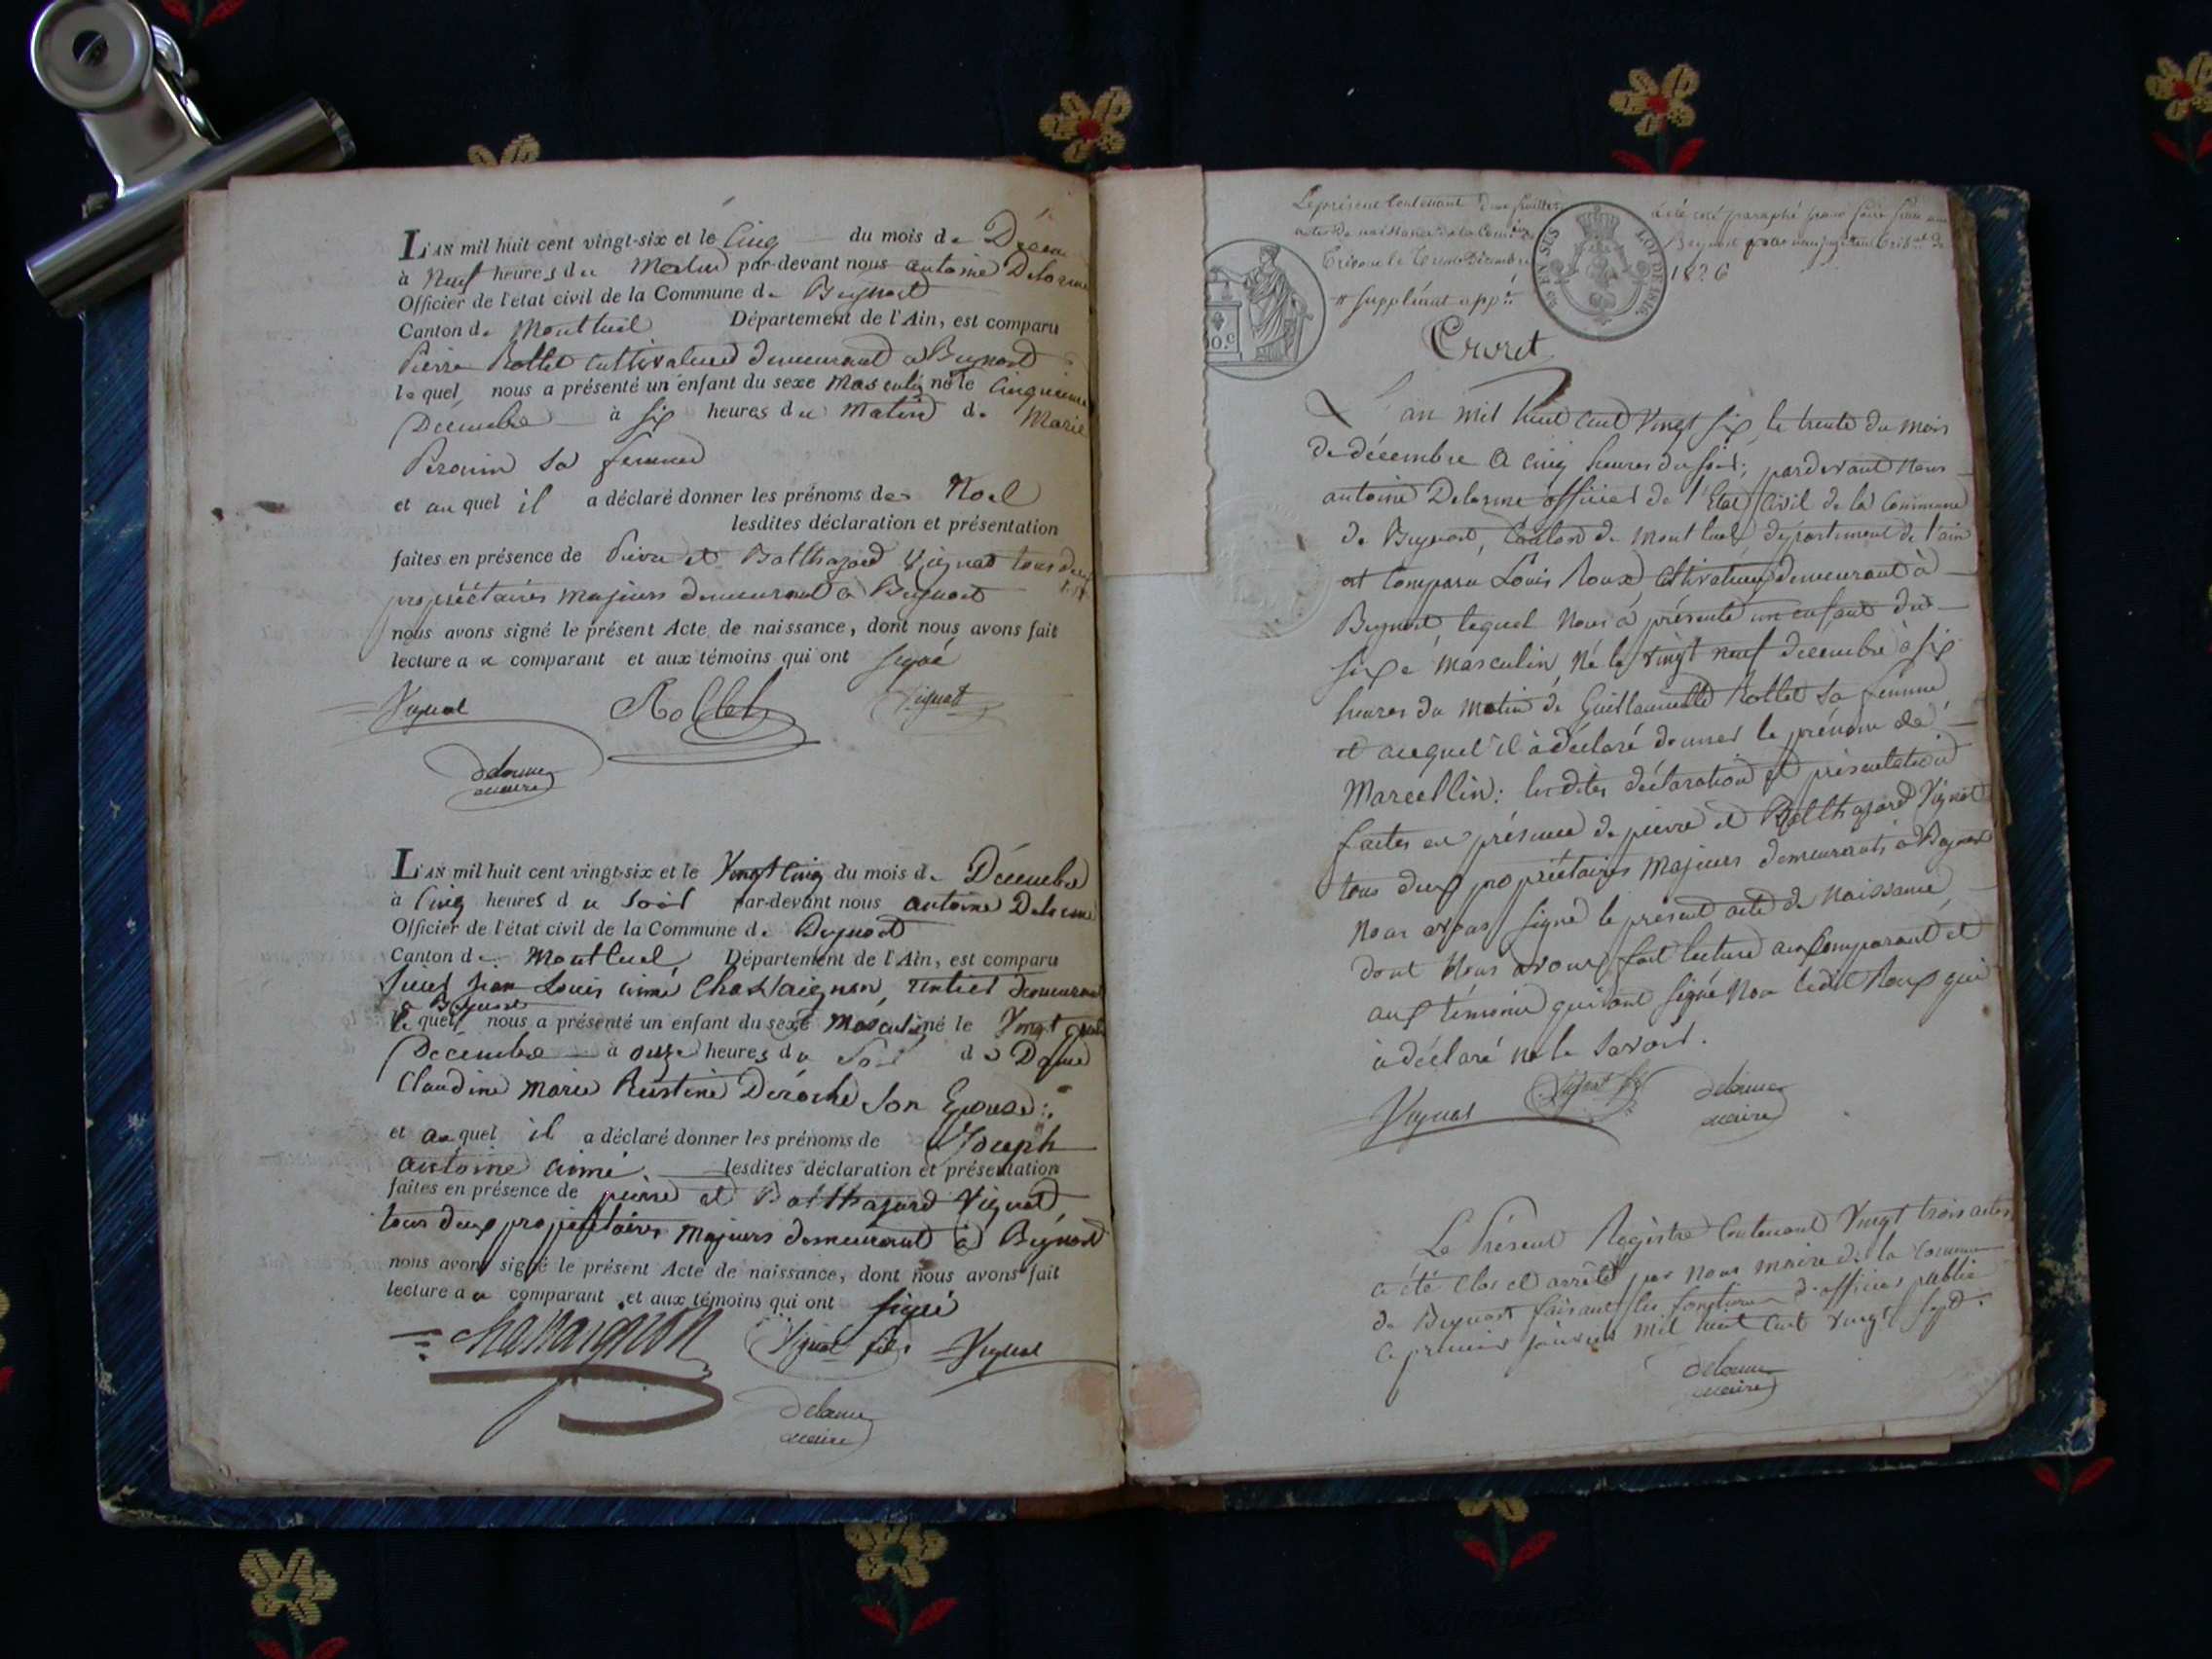 L'AN mil huit cent vingt-six et le Cinq du mois de
à Neuf heures du Matin par-devant nous antoine Delorme
Officier de l'état civil de la Commune de Beynost
Canton de Montluel Département de l'Ain, est comparu
Pierre Rollet cultivateur demeurant a Beynost
lequel nous a présenté un enfant du sexe Masculin né le Cinquieme
Décembre à Six heures du Matin de Marie
sa femme
et auquel il a déclaré donner les prénoms de Noel
lesdites déclaration et présentation
faites en présence de Pierre et Balthazard Vignat tous deux
propriétaires majeurs demeurant a Beynost
nous avons signé le présent Acte de naissance, dont nous avons fait
lecture au comparant et aux témoins qui ont signé
Vignat Rollet Vignat
Delorme
maire
L'AN mil huit cent vingt-six et le Vingt Cinq du mois de Décembre
à Cinq heures du Soir par-devant nous antoine Delorme
Officier de l'état civil de la Commune de Beynost
Canton de Montluel Département de l'Ain, est comparu
Jean Louis aimé Chassaignon, rentier demeurant
a Beynost
lequel nous a présenté un enfant du sexe Masculin né le Vingt quatre
Décembre à onze heures du Soir de Dame
Claudine Marie Deroche Son Epouse
et auquel il a déclaré donner les prénoms de Joseph
antoine aimé lesdites déclaration et présentation
faites en présence de pierre et Balthazard Vignat
tous deux propriétaires majeurs demeurant à Beynost
nous avons signé le présent Acte de naissance, dont nous avons fait
lecture au comparant et aux témoins qui ont signé
Chassaignon Vignat fils Vignat
Delorme
maire
Le présent Contenant deux feuilles
LOI DE 1816.
1826
suppléant
L'an mil huit cent vingt six le trente du mois
de décembre a cinq heures du soir; pardevant nous
antoine Delorme officier de l'Etat Civil de la Commune
de Beynost, Canton de Montluel département de l'ain
est comparu Louis Roux, cultivateur demeurant à
Beynost, lequel nous a présenté un enfant du
sexe masculin, né le vingt neuf decembre à six
heures du matin de Guillaumette Rollet sa femme
et auquel il à déclaré donner le prénom de
Marcellin: lesdites déclaration et présentation
faites en présence de pierre et Balthazard Vignat
tous deux propriétaires majeurs demeurants à Beynost
nous avons signé le present acte de naissance,
dont nous avons fait lecture au Comparant et
aux témoins qui ont signé non ledit Roux qui
à déclaré ne le savoir.
Vignat Vignat fils Delorme
maire
Le Présent Registre Contenant Vingt trois actes
a été clos et arrêté par nous maire de la commune
de Beynost faisant les fonctions d'officier public
ce premier janvier mil huit cent vingt sept.
Delorme
maire